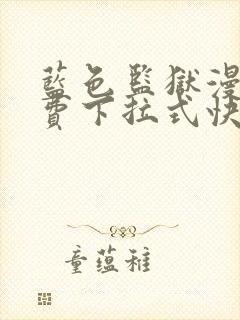 藍色監獄漫
費下拉式快
童蕴稚